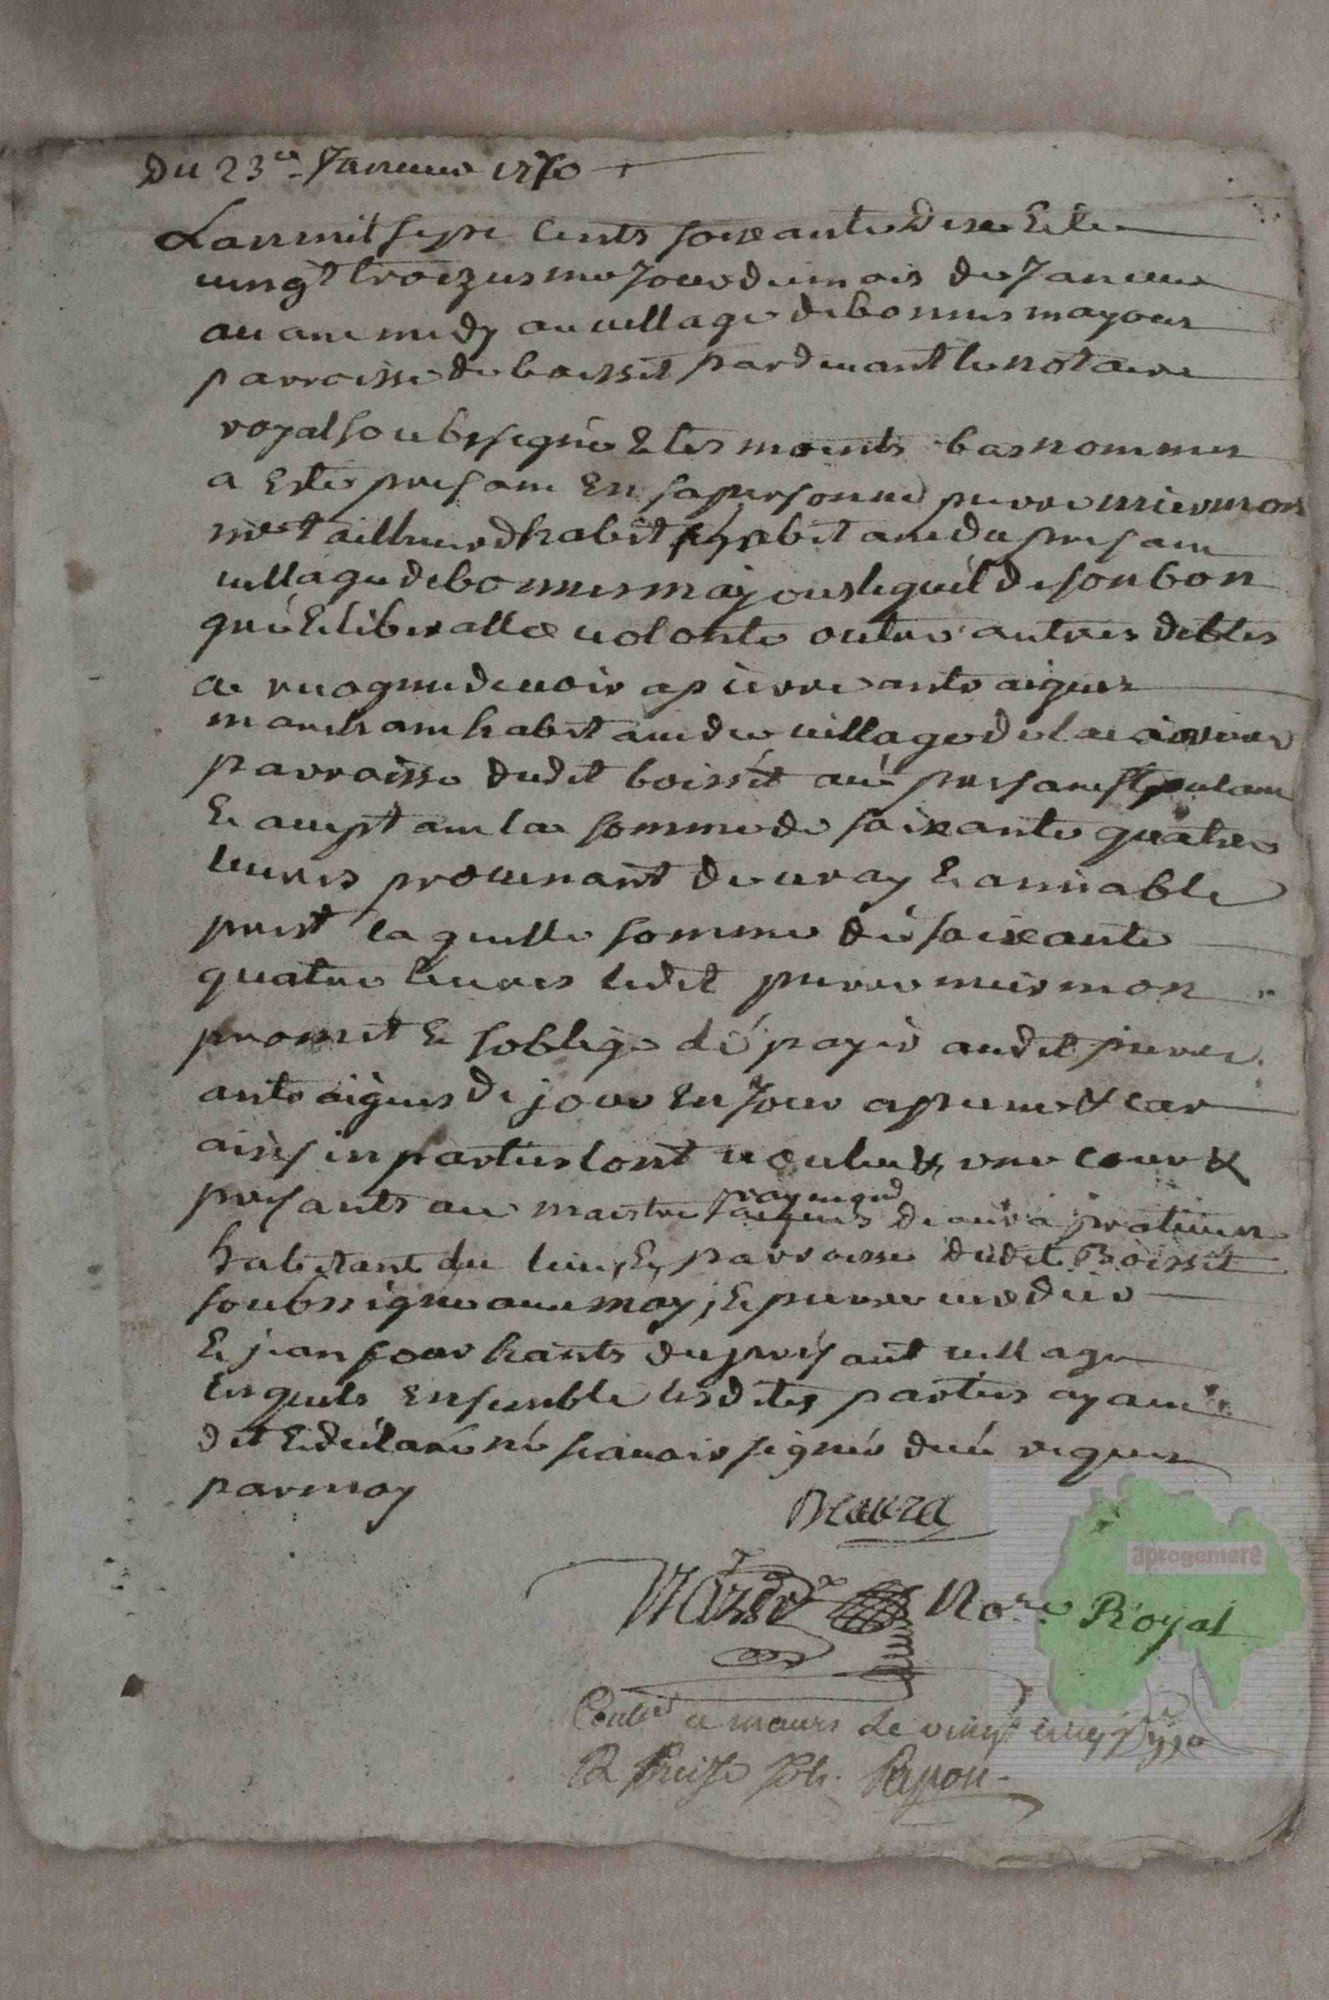 Du 23e Janvier 1770
Lan mil sept cents soixante dix & le
vingt troiziesme Jour du mois de Janvier
avant midy au village de bonnesmayoux
parroisse de boisset pardevant le notaire
royal soubsigné & tesmoints bas nommes
a este presant en sa personne pierre miermon
me tailleur dhabit habitant du presant
village de bonnesmayoux lequel de son bon
gré & liberalle volonte outre autres debtes
a recognu devoir a pierre anteaigues
marchant habitant du village de
parroisse dudit boisset aux presant stipulant
& aceptant la somme de soixante quatre
livres provenant de vray & amiable
prest laquelle somme de soixante
quatre livres ledit pierre miermon
promet & soblige de payer audit pierre
anteaigues de jour en Jour a peine & car
ainsin parties lont voulu & cour &
presants au maistre raymond Jacques deaura praticien
habitant du lieu & parroisse dudit Boisset
soubssigne avec moy, & pierre verdier
& jean four hants du presant village
lesquels ensemble lesdites parties ayant
dit & déclaré ne scavoir signer de ce requis
par moy
Deaura
Nore Royal
Conllé a maurs le vingt cinq 1770
R Treize sols
aprogemere